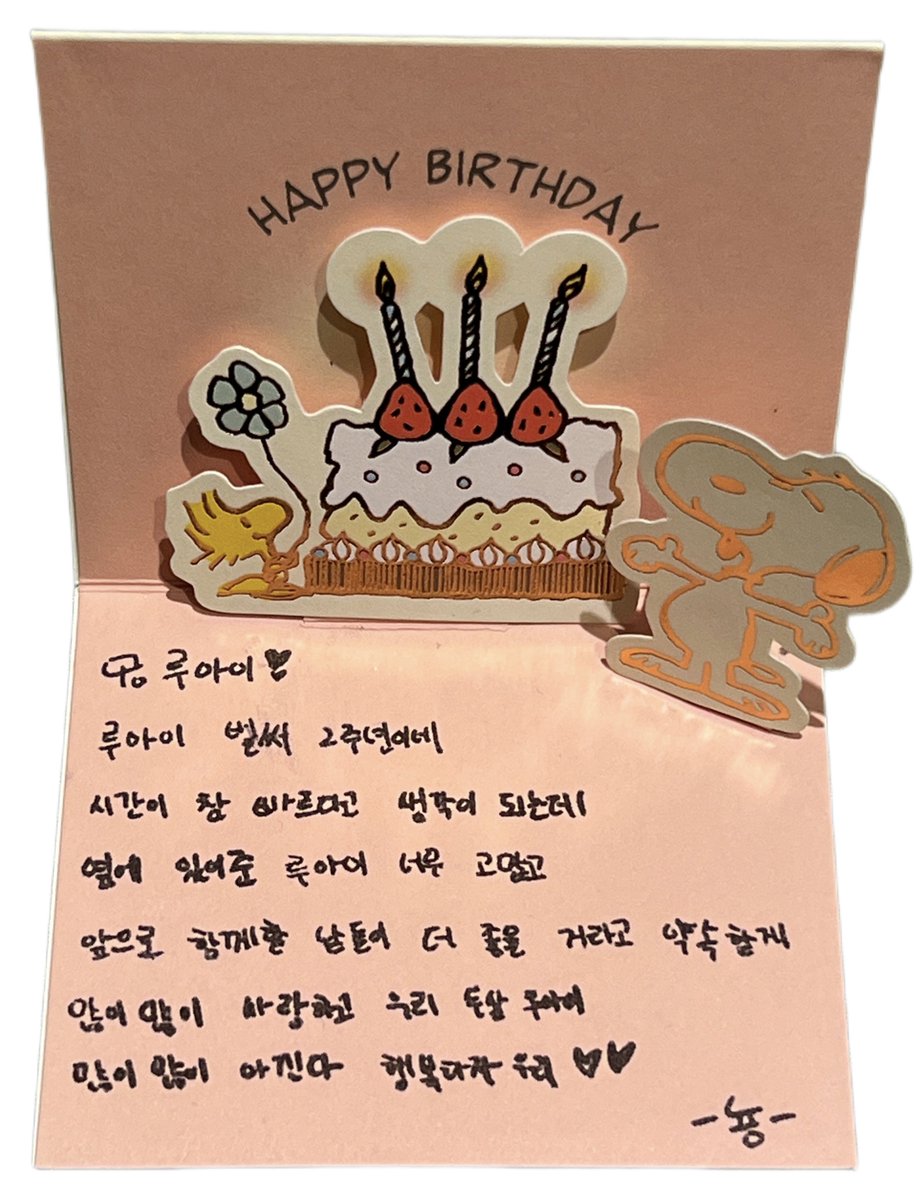 HAPPY BIRTHDAY
루아이♥
루아이 벌써 2주년이네
시간이 참 빠르다고 생각이 되는데
옆에 있어준 루아이 너무 고맙고
앞으로 함께할 날들이 더 좋을 거라고 약속할게
많이 많이 사랑하고 우리
많이 많이 아낀다 행복하자 우리 ♥♥